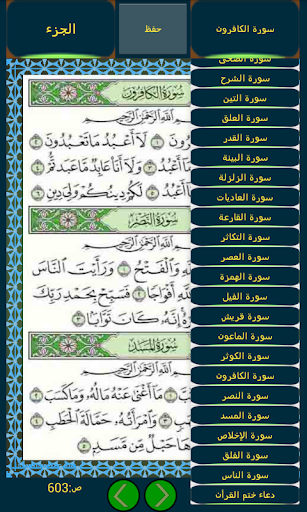 سورة الكافرون
حفظ
الجزء
سورة الضحى
سورة الشرح
سورة التين
سورة العلق
سورة القدر
سورة البينة
سورة الزلزلة
سورة العاديات
سورة القارعة
سورة التكاثر
سورة العصر
سورة الهمزة
سورة الفيل
سورة قريش
سورة الماعون
سورة الكوثر
سورة الكافرون
سورة النصر
سورة المسد
سورة الإخلاص
سورة الفلق
سورة الناس
دعاء ختم القرأن
سُورَةُ الكَافِرُونَ
بِسْمِ اللَّهِ الرَّحْمَٰنِ الرَّحِيمِ
رُونَ ١ لَا أَعْبُدُ مَا تَعْبُدُونَ ٢
مَا أَعْبُدُ ٣ وَلَا أَنَا عَابِدٌ مَّا عَبَدتُّمْ ٤
مَا أَعْبُدُ ٥ لَكُمْ دِينُكُمْ وَلِيَ دِينِ ٦
سُورَةُ النَّصْرِ
بِسْمِ اللَّهِ الرَّحْمَٰنِ الرَّحِيمِ
اللَّهِ وَالْفَتْحُ ١ وَرَأَيْتَ النَّاسَ
اللَّهِ أَفْوَاجًا ٢ فَسَبِّحْ بِحَمْدِ رَبِّكَ
إِنَّهُ كَانَ تَوَّابًا ٣
سُورَةُ المَسَدِ
بِسْمِ اللَّهِ الرَّحْمَٰنِ الرَّحِيمِ
١ مَا أَغْنَىٰ عَنْهُ مَالُهُ وَمَا كَسَبَ
وَامْرَأَتُهُ حَمَّالَةَ الْحَطَبِ ٤
هَا حَبْلٌ مِّن مَّسَدٍ ٥
ص:603